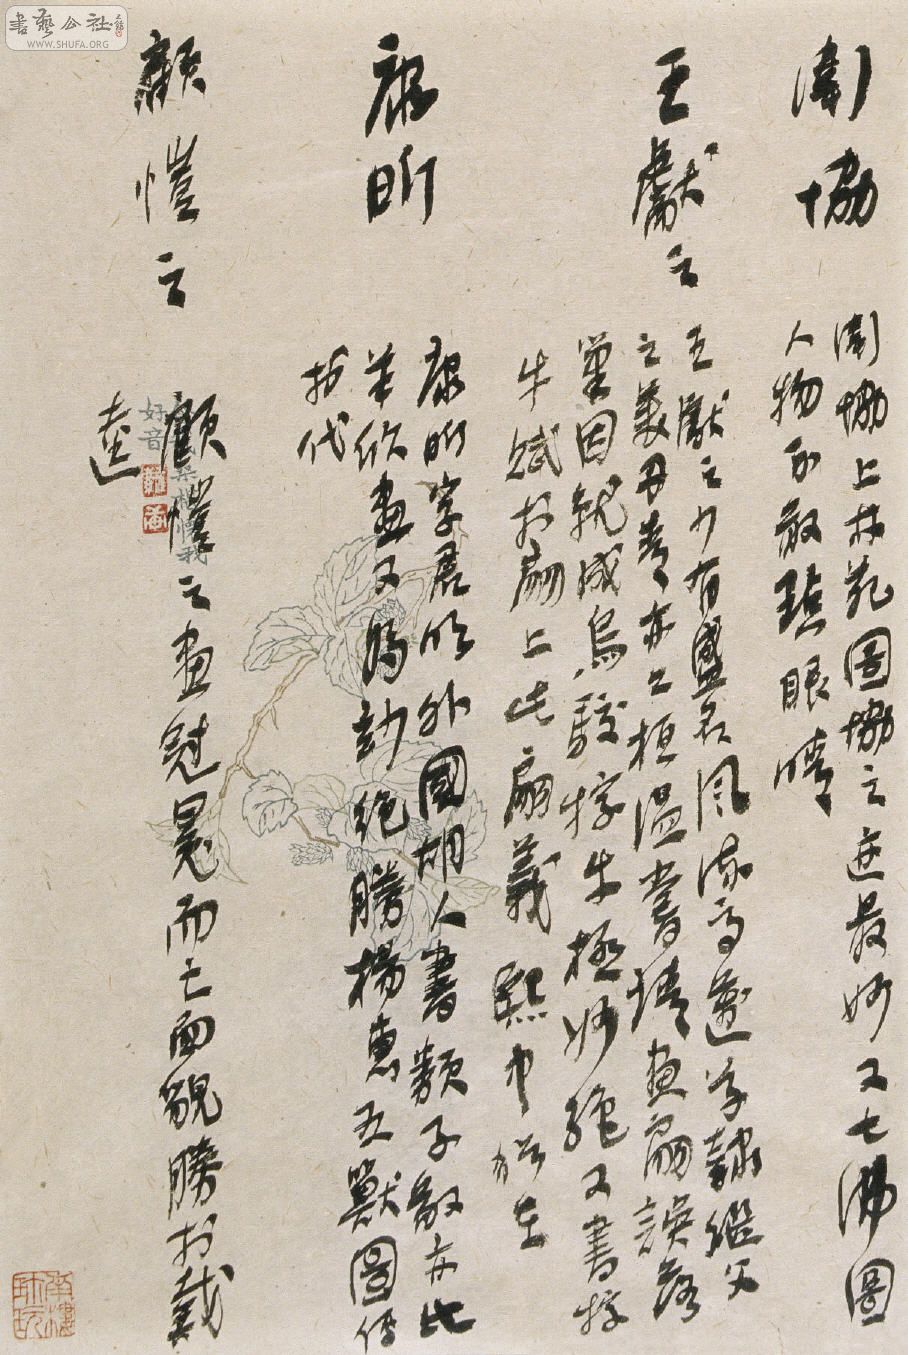 衛協
衛協上林苑圖協之迹最妙又七佛圖
人物不敢點眼睛
王獻之
王獻之少有盛名風流高邁草隸繼父
之美丹青亦工桓温嘗請畫扇誤落
筆因就成烏駁牸牛極妙絶又書牸
牛賦於扇上此扇義熙中猶在
康昕
康昕字君明外國胡人書類子敬亦比
羊欣畫又為妙絶勝楊惠五獸圖傳
於代
顧愷之
顧愷之畫冠冕而亡面貌勝於戴
逵
好音
書藝公社
WWW.SHUFA.ORG